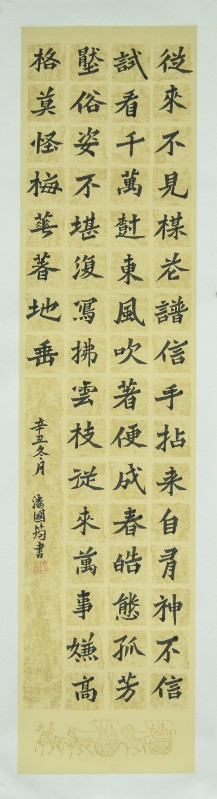 從來不見楳花譜信手拈来自有神不信
試看千萬尌東風吹著便成春皓態孤芳
壓俗姿不堪復寫拂雲枝從來萬事嫌高
格莫怪梅華著地垂
辛丑冬月
潘國筠書